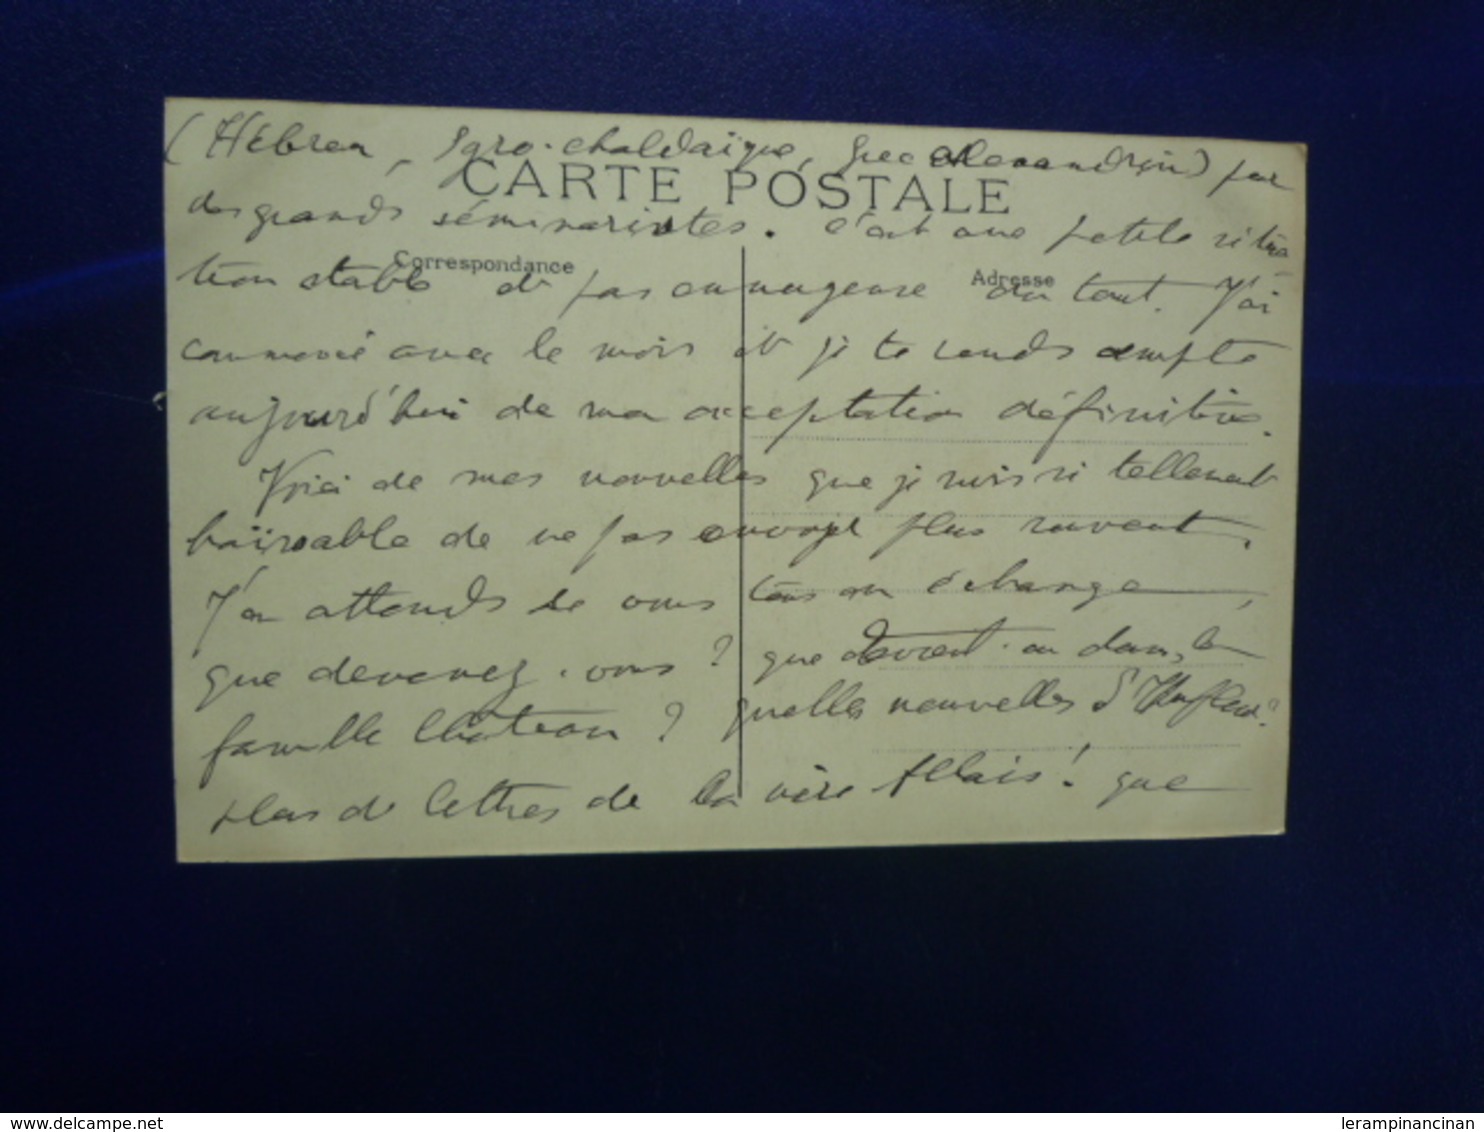 (Hébreu, Syro-chaldaïque, Grec alexandrin) par
CARTE POSTALE
des grands séminaristes. C'est une petite situa
Correspondance
Adresse
tion stable et pas ennuyeuse du tout. J'ai
commencé avec le mois et je te rends compte
aujourd'hui de mon acceptation définitive.
Voici de mes nouvelles que je suis si tellement
haïssable de ne pas envoyer plus souvent.
J'en attends de vous tous en échange,
que devenez-vous? que devient-on dans la
famille Château? quelles nouvelles d'Honfleur?
plus de lettres de la mère Allais! que
www.delcampe.net
lerampinancinan